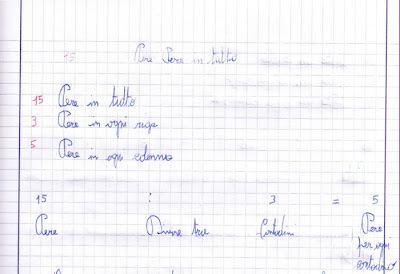 15 Pere Pere in tutto
15 Pere in tutto
3 Pere in ogni riga
5 Pere in ogni
15 : 3 = 5
Pere tra Pere
per ogni
contadino